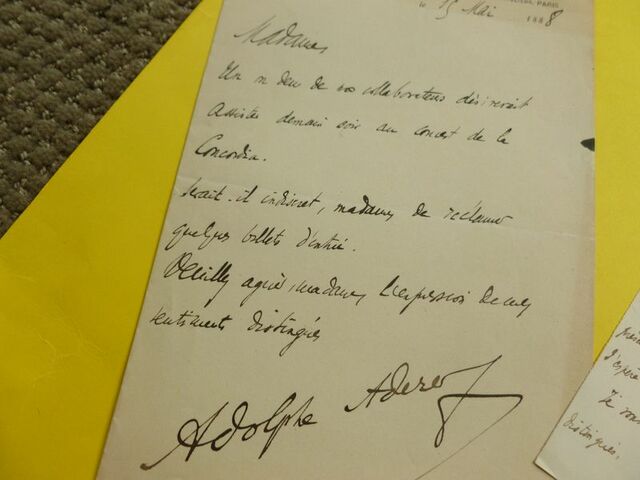 PARIS
le 15 Mai 1888
Madame,
Un ou deux de nos collaborateurs désirerait
assister demain soir au concert de la
Concordia.
Serait-il indiscret, madame, de réclamer
quelques billets d'entrée.
Veuillez agréer, madame, l'expression de mes
sentiments distingués
Adolphe Aderer
l'espère
Je vous
distingués.